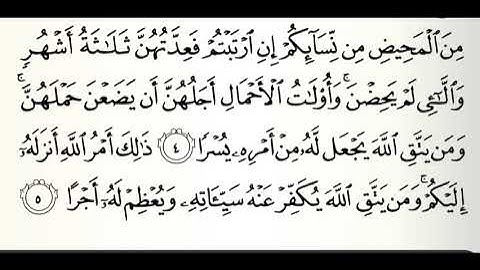 مِنَ ٱلْمَحِيضِ مِن نِّسَآئِكُمْ إِنِ ٱرْتَبْتُمْ فَعِدَّتُهُنَّ ثَلَٰثَةُ أَشْهُرٍ
وَٱلَّٰٓـِٔى لَمْ يَحِضْنَ ۚ وَأُو۟لَٰتُ ٱلْأَحْمَالِ أَجَلُهُنَّ أَن يَضَعْنَ حَمْلَهُنَّ ۚ
وَمَن يَتَّقِ ٱللَّهَ يَجْعَل لَّهُۥ مِنْ أَمْرِهِۦ يُسْرًا ٤ ذَٰلِكَ أَمْرُ ٱللَّهِ أَنزَلَهُۥٓ
إِلَيْكُمْ ۚ وَمَن يَتَّقِ ٱللَّهَ يُكَفِّرْ عَنْهُ سَيِّـَٔاتِهِۦ وَيُعْظِمْ لَهُۥٓ أَجْرًا ٥